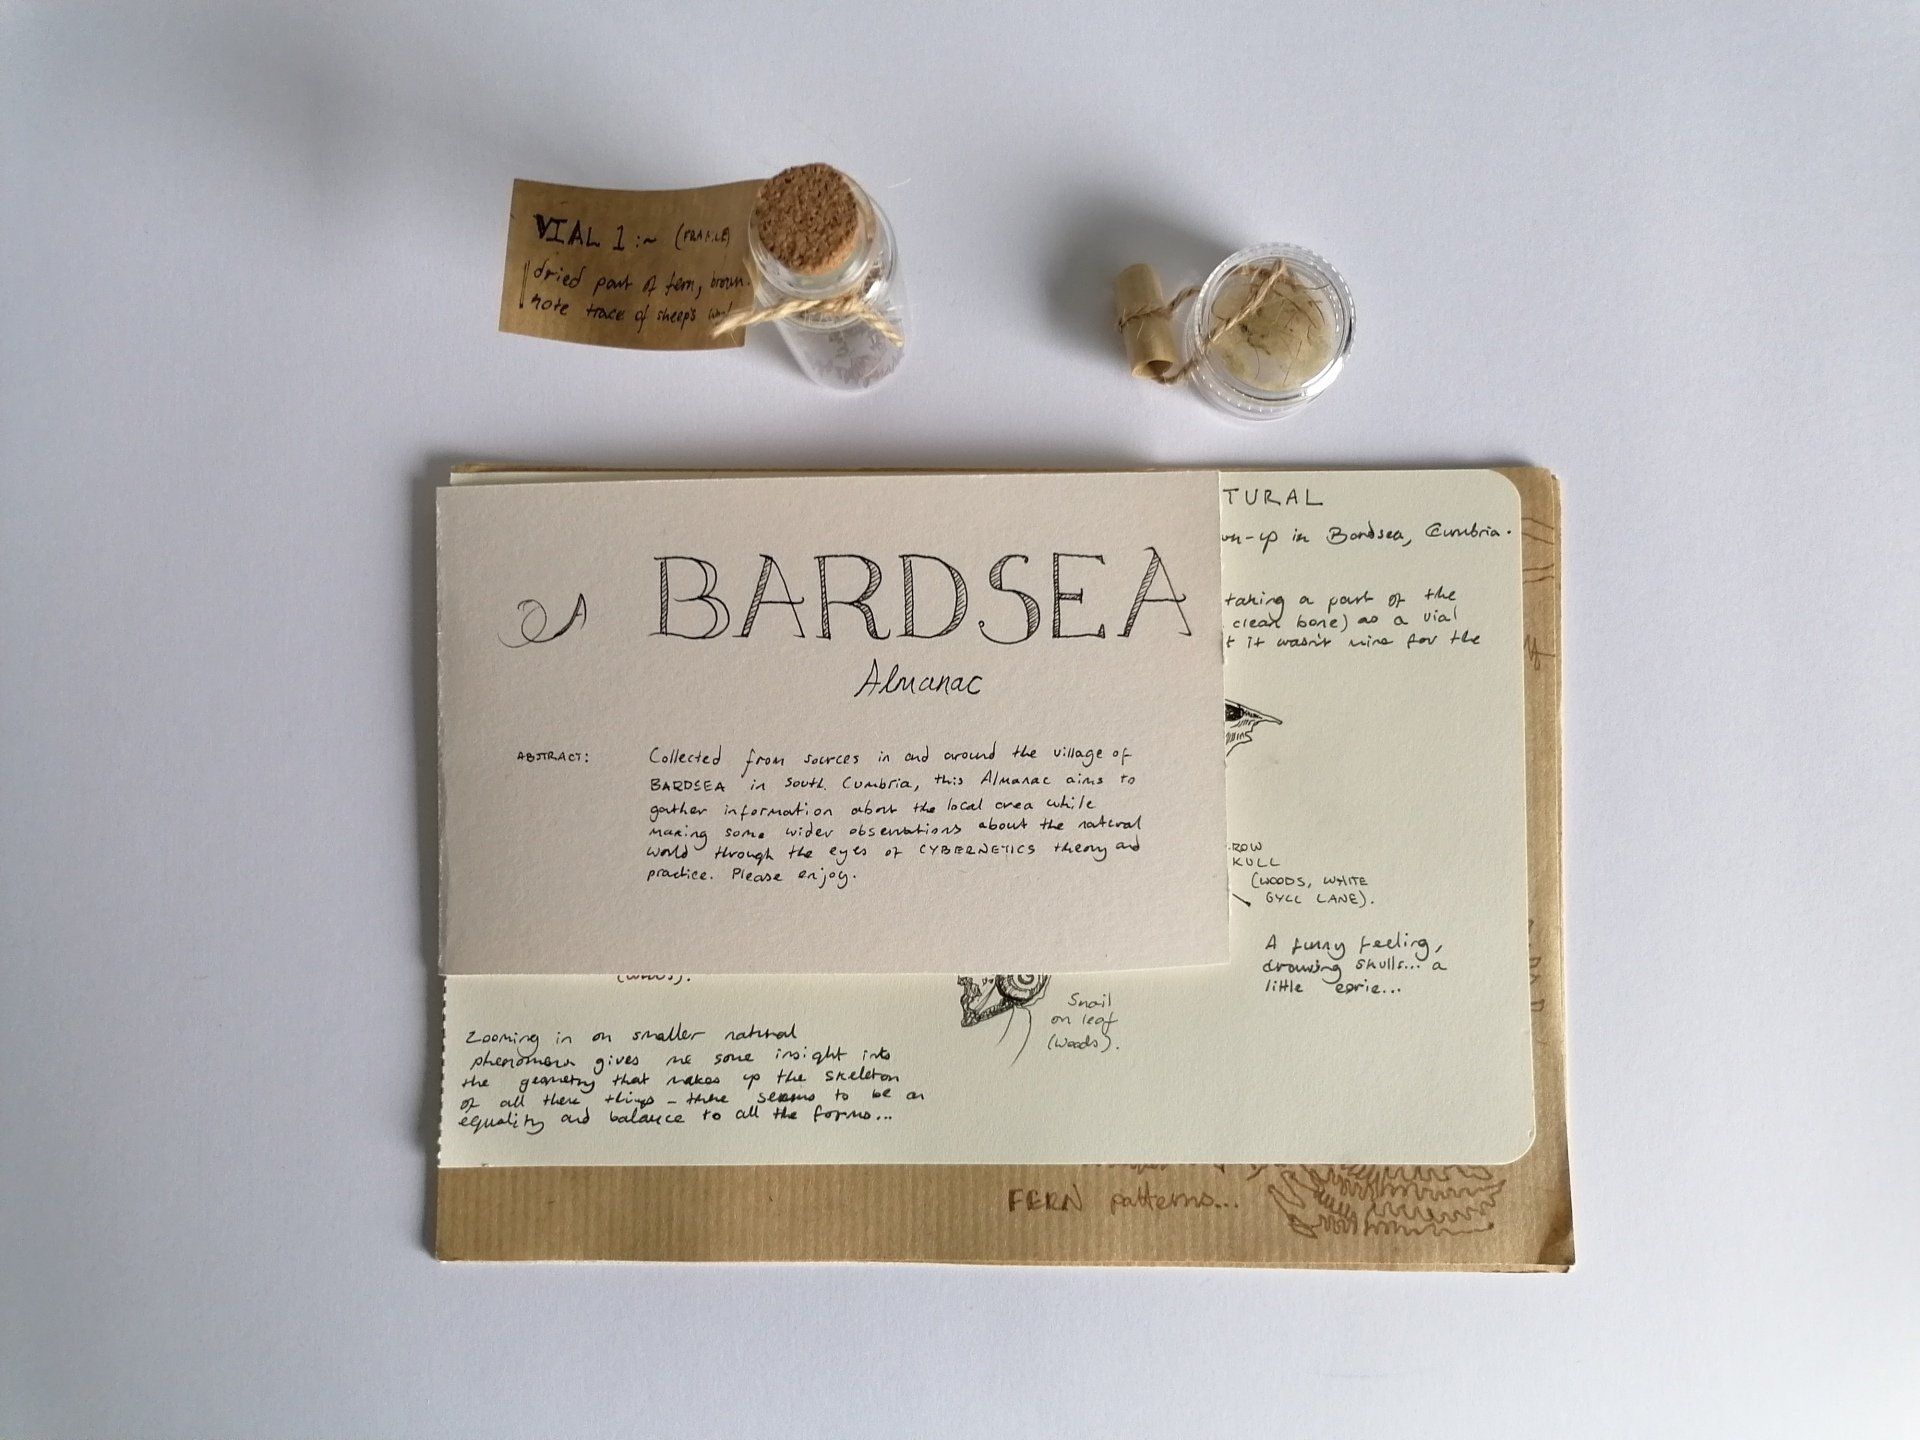 VIAL 1 :~ (FRAGILE)
dried part of fern, brown.
note trace of sheep's wool
TURAL
wn-up in Bardsea, Cumbria.
taking a part of the
clean bone) as a vial
t it wasn't mine for the
A BARDSEA
Almanac
ABSTRACT: Collected from sources in and around the village of
BARDSEA in South Cumbria, this Almanac aims to
gather information about the local area while
making some wider observations about the natural
world through the eyes of CYBERNETICS theory and
practice. Please enjoy.
ROW
KULL
(WOODS, WHITE
GYLL LANE).
A funny feeling,
drawing skulls... a
little eerie...
(woods).
Snail
on leaf
(woods).
Zooming in on smaller natural
phenomena gives me some insight into
the geometry that makes up the skeleton
of all these things - there seems to be an
equality and balance to all the forms...
FERN patterns...